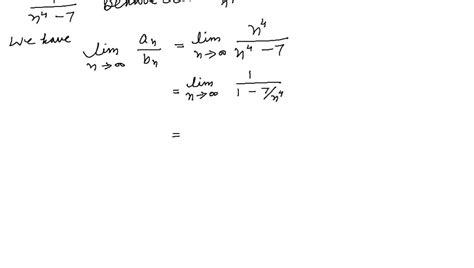 1/(n⁴ − 7)
We have lim n→∞ aₙ/bₙ = lim n→∞ n⁴/(n⁴ − 7)
= lim n→∞ 1/(1 − 7/n⁴)
=